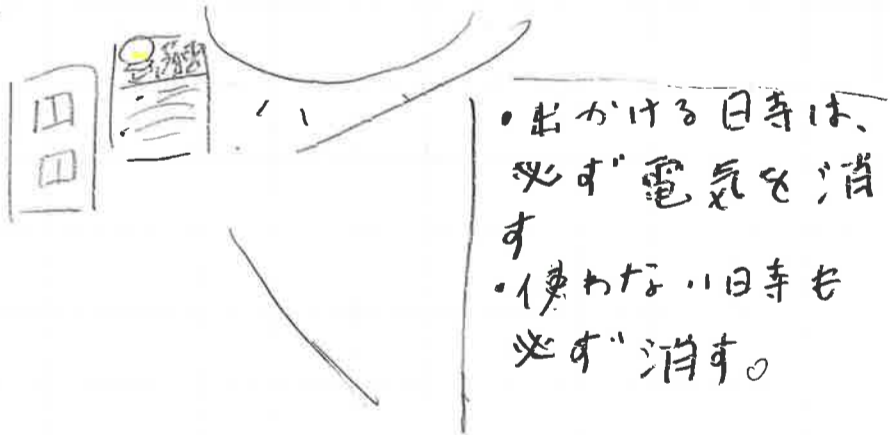 ・出かける時は、
必ず電気を消
す
・使わない時も
必ず消す。